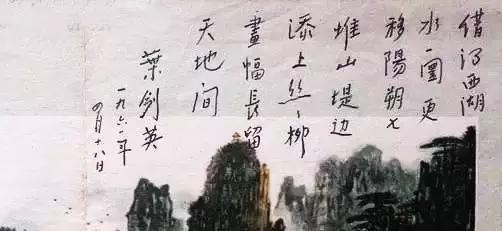 借得西湖
水一圜更
移陽朔七
堆山堤边
添上絲々柳
畫幅長留
天地間
葉剑英
一九六一年
四月十八日